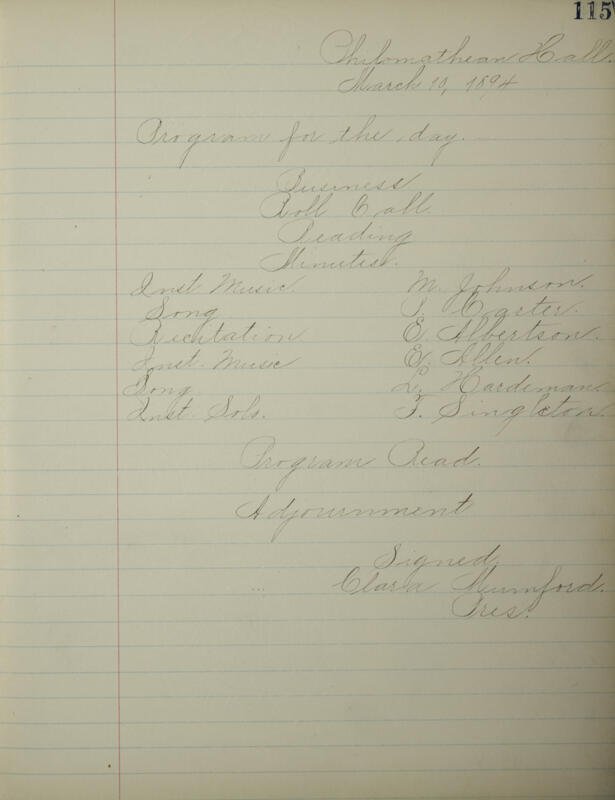 115
Philomathean Hall.
March 10, 1894
Program for the day.
Business
Roll Call
Reading
Minutes.
Inst Music M. Johnson.
Song Carter.
Recitation E. Albertson.
Inst. Music E. Allen.
Song L. Hardeman
Inst. Solo. F. Singleton
Program Read.
Adjournment
Signed
Clara Mumford.
Pres.